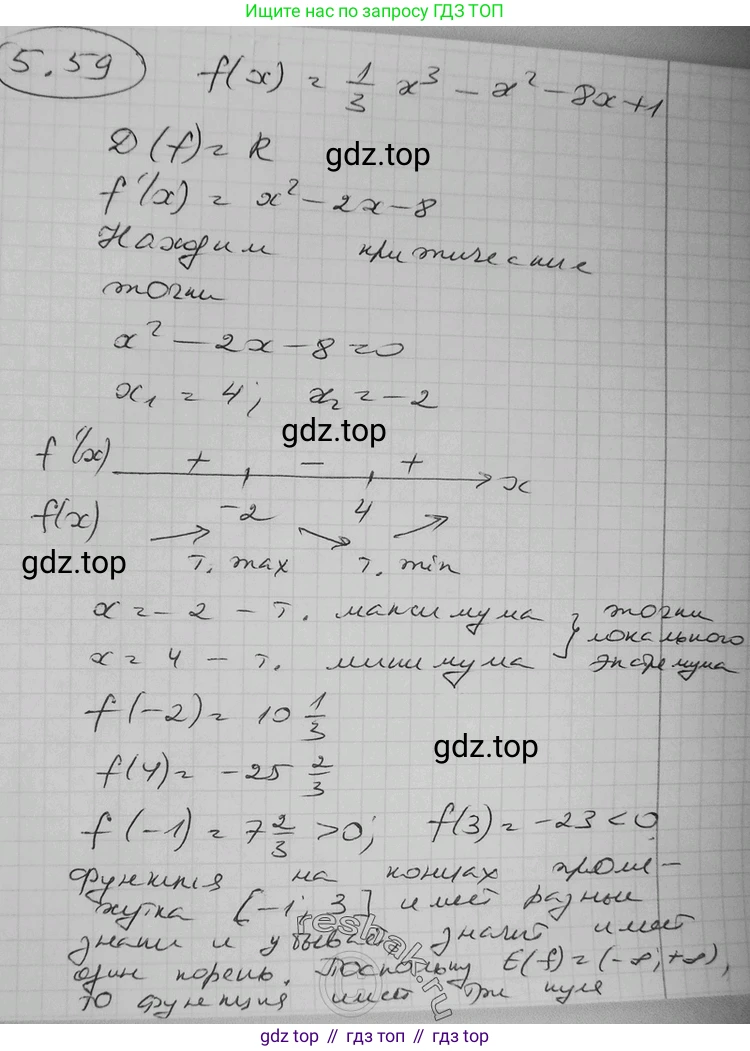 Ищите нас по запросу ГДЗ ТОП
5.59 f(x) = 1/3 x³ - x² - 8x + 1
D(f) = R
gdz.top
f'(x) = x² - 2x - 8
Находим критические
точки
x² - 2x - 8 = 0
x₁ = 4; x₂ = -2
gdz.top
f'(x) + - + x
f(x) -2 4
gdz.top т. max т. min
x = -2 - т. максимума } точки
локального
x = 4 - т. минимума экстремума
f(-2) = 10 1/3
gdz.top
f(4) = -25 2/3
f(-1) = 7 2/3 > 0; f(3) = -23 < 0
Функция на концах проме-
жутка [-1; 3] имеет разные
знаки и убывает, значит имеет
один корень. Поскольку E(f) = (-∞; +∞),
то функция имеет три нуля
reshak.ru
gdz.top // гдз.топ // gdz.top // гдз.топ